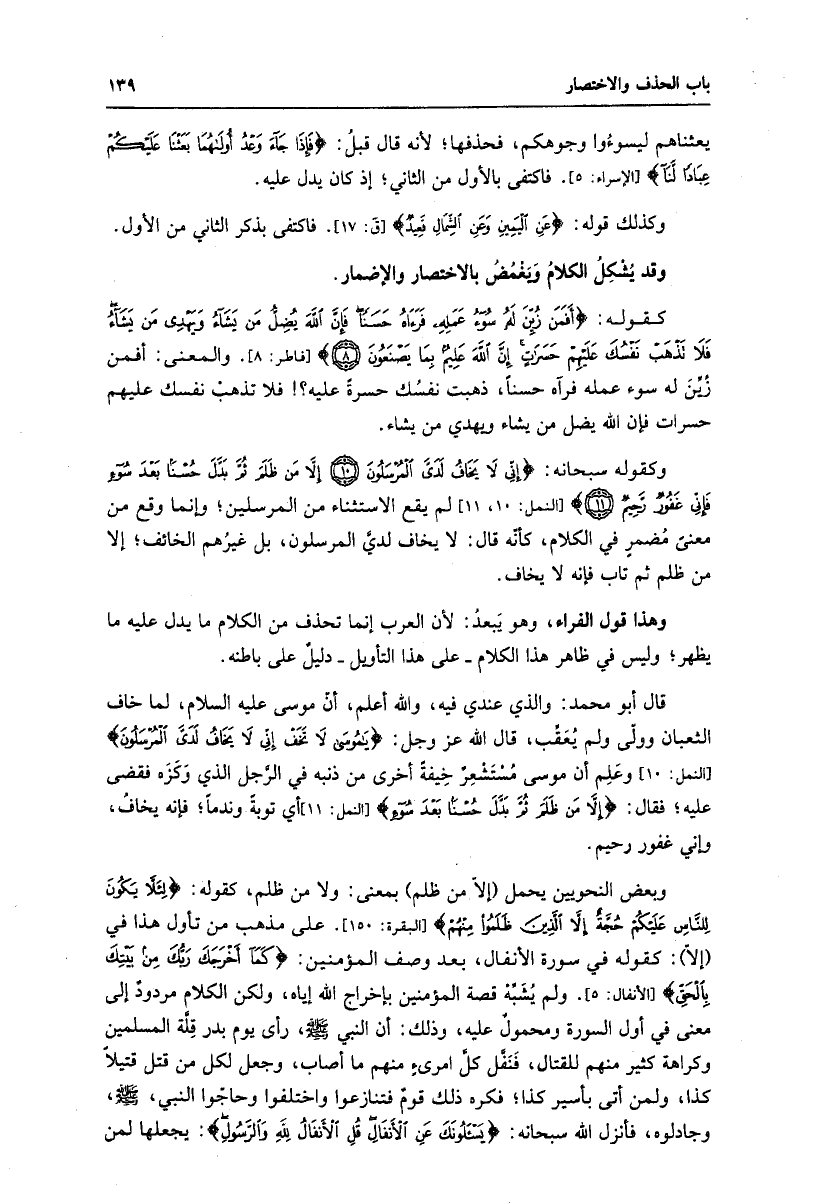 باب الحذف والاختصار ١٣٩
بعثناهم ليسوءُوا وجوهكم، فحذفها؛ لأنه قال قبلُ: ﴿فَإِذَا جَآءَ وَعْدُ أُولَىٰهُمَا بَعَثْنَا عَلَيْكُمْ
عِبَادًا لَّنَآ﴾ [الإسراء: ٥]. فاكتفى بالأول من الثاني؛ إذ كان يدل عليه.
وكذلك قوله: ﴿عَنِ ٱلْيَمِينِ وَعَنِ ٱلشِّمَالِ قَعِيدٌ﴾ [قَ: ١٧]. فاكتفى بذكر الثاني من الأول.
وقد يُشْكِلُ الكلامُ وَيَغْمُضُ بالاختصار والإضمار.
كـقـولـه: ﴿أَفَمَن زُيِّنَ لَهُۥ سُوٓءُ عَمَلِهِۦ فَرَءَاهُ حَسَنًا ۖ فَإِنَّ ٱللَّهَ يُضِلُّ مَن يَشَآءُ وَيَهْدِى مَن يَشَآءُ ۖ
فَلَا تَذْهَبْ نَفْسُكَ عَلَيْهِمْ حَسَرَٰتٍ ۚ إِنَّ ٱللَّهَ عَلِيمٌۢ بِمَا يَصْنَعُونَ ۝٨﴾ [فاطر: ٨]. والـمـعـنى: أفـمـن
زُيِّنَ له سوء عمله فرآه حسناً، ذهبت نفسُك حسرةً عليه؟! فلا تذهبْ نفسك عليهم
حسرات فإن الله يضل من يشاء ويهدي من يشاء.
وكقوله سبحانه: ﴿إِنِّى لَا يَخَافُ لَدَىَّ ٱلْمُرْسَلُونَ ۝١٠ إِلَّا مَن ظَلَمَ ثُمَّ بَدَّلَ حُسْنًۢا بَعْدَ سُوٓءٍ
فَإِنِّى غَفُورٌ رَّحِيمٌ ۝١١﴾ [النمل: ١٠، ١١] لم يقع الاستثناء من المرسلين؛ وإنما وقع من
معنىً مُضمرٍ في الكلام، كأنّه قال: لا يخاف لديَّ المرسلون، بل غيرُهم الخائف؛ إلا
من ظلم ثم تاب فإنه لا يخاف.
وهذا قول الفراء، وهو يَبعدُ: لأن العرب إنما تحذف من الكلام ما يدل عليه ما
يظهر؛ وليس في ظاهر هذا الكلام ـ على هذا التأويل ـ دليلٌ على باطنه.
قال أبو محمد: والذي عندي فيه، والله أعلم، أنّ موسى عليه السلام، لما خاف
الثعبان وولّى ولم يُعَقِّب، قال الله عز وجل: ﴿يَٰمُوسَىٰ لَا تَخَفْ إِنِّى لَا يَخَافُ لَدَىَّ ٱلْمُرْسَلُونَ﴾
[النمل: ١٠] وعَلِم أن موسى مُسْتَشْعِرٌ خِيفةً أخرى من ذنبه في الرَّجل الذي وَكَزَه فقضى
عليه؛ فقال: ﴿إِلَّا مَن ظَلَمَ ثُمَّ بَدَّلَ حُسْنًۢا بَعْدَ سُوٓءٍ﴾ [النمل: ١١]أي توبةً وندماً؛ فإنه يخافُ،
وإني غفور رحيم.
وبعض النحويين يحمل (إلاّ من ظلم) بمعنى: ولا من ظلم، كقوله: ﴿لِئَلَّا يَكُونَ
لِلنَّاسِ عَلَيْكُمْ حُجَّةٌ إِلَّا ٱلَّذِينَ ظَلَمُوا۟ مِنْهُمْ﴾ [البقرة: ١٥٠]. على مذهب من تأول هذا في
(إلاّ): كـقـولـه في سورة الأنفال، بـعـد وصف الـمـؤمنين: ﴿كَمَآ أَخْرَجَكَ رَبُّكَ مِنۢ بَيْتِكَ
بِٱلْحَقِّ﴾ [الأنفال: ٥]. ولم يُشَبِّهْ قصة المؤمنين بإخراج الله إياه، ولكن الكلام مردودٌ إلى
معنى في أول السورة ومحمولٌ عليه، وذلك: أن النبي ﷺ، رأى يوم بدر قِلَّة المسلمين
وكراهة كثير منهم للقتال، فَنَفَّل كلَّ امرىءٍ منهم ما أصاب، وجعل لكل من قتل قتيلاً
كذا، ولمن أتى بأسير كذا؛ فكره ذلك قومٌ فتنازعوا واختلفوا وحاجّوا النبي، ﷺ،
وجادلوه، فأنزل الله سبحانه: ﴿يَسْـَٔلُونَكَ عَنِ ٱلْأَنفَالِ ۖ قُلِ ٱلْأَنفَالُ لِلَّهِ وَٱلرَّسُولِ ۖ﴾: يجعلها لمن